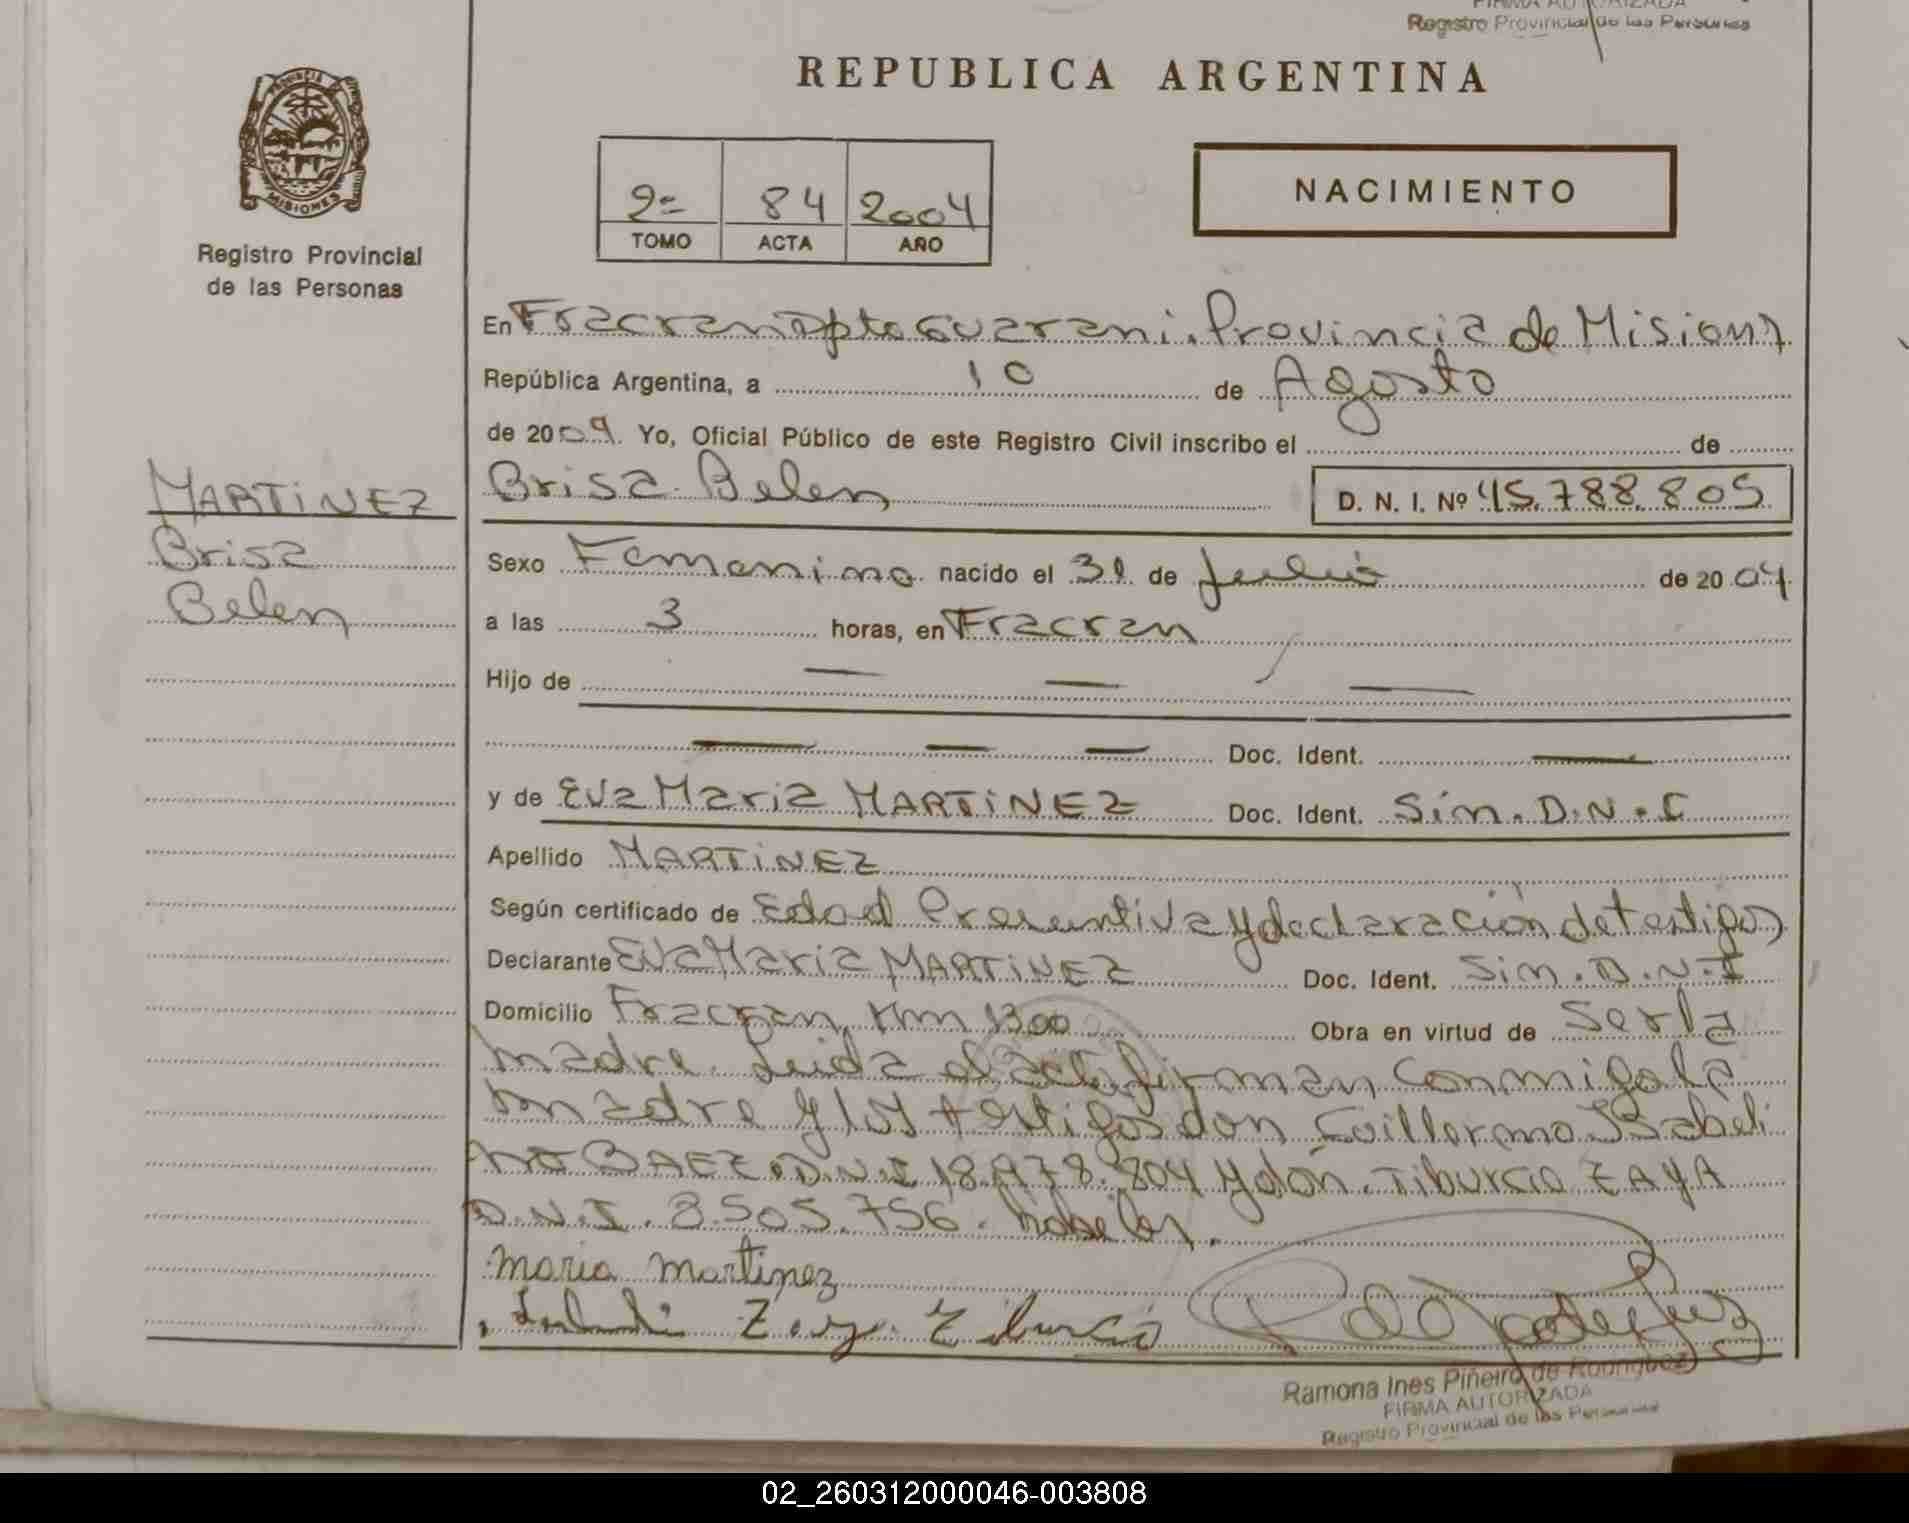 FIRMA AUTORIZADA
Registro Provincial de las Personas
REPUBLICA ARGENTINA
PROVINCIA
MISIONES
Registro Provincial
de las Personas
2º 84 2004
TOMO ACTA AÑO
NACIMIENTO
En Fracran Dpto Guarani. Provincia de Misiones
República Argentina, a 10 de Agosto
de 2009. Yo, Oficial Público de este Registro Civil inscribo el de
Brisa Belen, D. N. I. Nº 45.788.805
MARTiNEZ
Brisa
Belen
Sexo Femenino nacido el 31 de Julio de 2004
a las 3 horas, en Fracran
Hijo de
Doc. Ident.
y de Eva Maria MARTiNEZ Doc. Ident. Sin. D.N.I
Apellido MARTiNEZ
Según certificado de Edad Presuntiva y declaración de testigos
Declarante Eva Maria MARTiNEZ Doc. Ident. Sin. D.N.I
Domicilio Fracran, Km 1300 Obra en virtud de Ser la
madre. Leida el acta firman conmigo la
madre y los testigos don Guillermo Isabeli
no BAEZ. D.N.I 18.978.804 y don. Tiburcio ZAYA
D.N.I. 8.505.756.
maria martinez
Ramona Ines Piñeiro de Rodriguez
FIRMA AUTORIZADA
Registro Provincial de las Personas
02_260312000046-003808